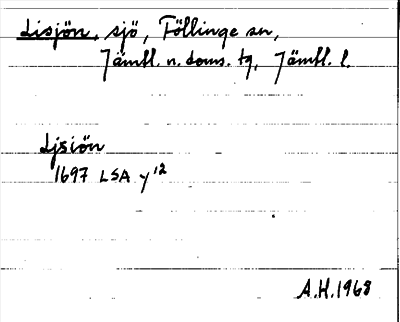 Lisjön, sjö, Föllinge sn,
Jämtl. n. doms. tg, Jämtl. l.
Ljsiön
1697 LSA y 12
A.H. 1968